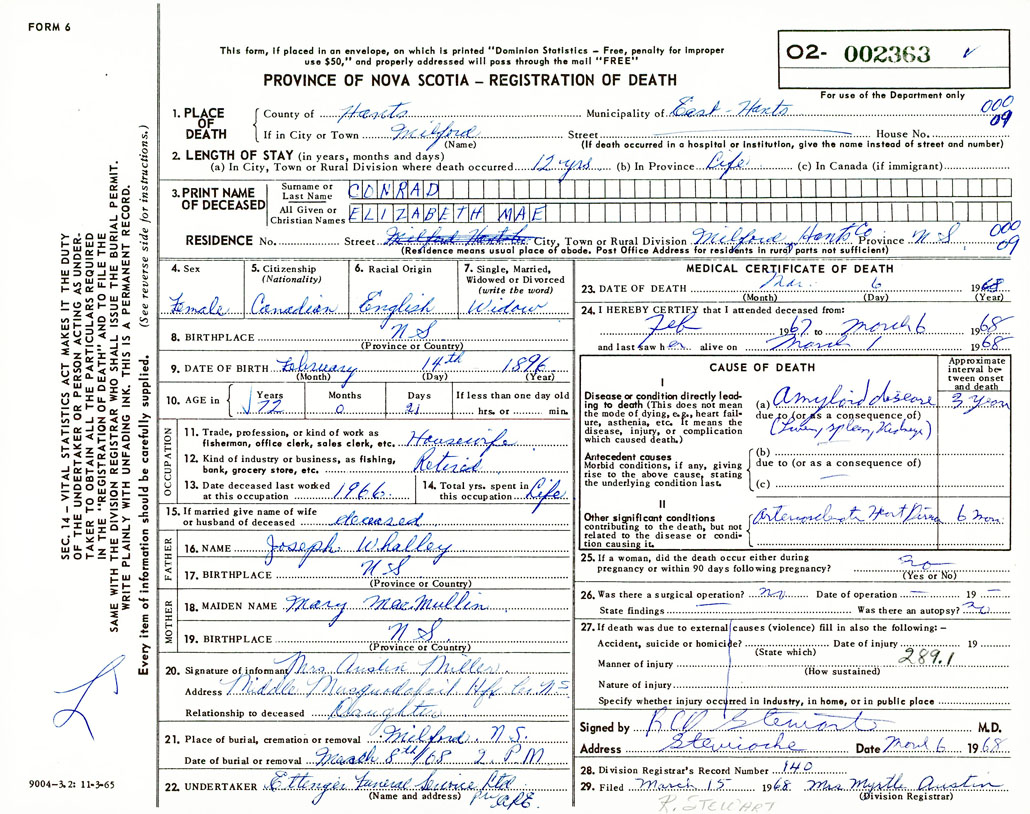 FORM 6
This form, if placed in an envelope, on which is printed "Dominion Statistics – Free, penalty for improper
use $50," and properly addressed will pass through the mail "FREE"
O2- 002363
PROVINCE OF NOVA SCOTIA – REGISTRATION OF DEATH
For use of the Department only
SEC. 14 – VITAL STATISTICS ACT MAKES IT THE DUTY
OF THE UNDERTAKER OR PERSON ACTING AS UNDER-
TAKER TO OBTAIN ALL THE PARTICULARS REQUIRED
IN THE "REGISTRATION OF DEATH" AND TO FILE THE
SAME WITH THE DIVISION REGISTRAR WHO SHALL ISSUE THE BURIAL PERMIT.
WRITE PLAINLY WITH UNFADING INK. THIS IS A PERMANENT RECORD.
Every item of information should be carefully supplied. (See reverse side for instructions.)
1. PLACE OF DEATH
County of Hants Municipality of East - Hants 000
If in City or Town Milford Street House No. 09
(Name) (If death occurred in a hospital or institution, give the name instead of street and number)
2. LENGTH OF STAY (in years, months and days)
(a) In City, Town or Rural Division where death occurred 12 yrs (b) In Province Life (c) In Canada (if immigrant)
3. PRINT NAME OF DECEASED
Surname or Last Name CONRAD
All Given or Christian Names ELIZABETH MAE
RESIDENCE No. Street City, Town or Rural Division Milford Hants Co Province N S 000 09
(Residence means usual place of abode. Post Office Address for residents in rural parts not sufficient)
4. Sex Female
5. Citizenship (Nationality) Canadian
6. Racial Origin English
7. Single, Married, Widowed or Divorced (write the word) Widow
8. BIRTHPLACE N S
(Province or Country)
9. DATE OF BIRTH February 14th 1896
(Month) (Day) (Year)
10. AGE in Years 72 Months 0 Days 21 If less than one day old hrs. or min.
OCCUPATION
11. Trade, profession, or kind of work as fisherman, office clerk, sales clerk, etc. Housewife
12. Kind of industry or business, as fishing, bank, grocery store, etc. Retired
13. Date deceased last worked at this occupation 1966
14. Total yrs. spent in this occupation Life
15. If married give name of wife or husband of deceased deceased
FATHER
16. NAME Joseph Whalley
17. BIRTHPLACE N S
(Province or Country)
MOTHER
18. MAIDEN NAME Mary MacMullin
19. BIRTHPLACE N S.
(Province or Country)
20. Signature of informant Mrs Austin Miller
Address Middle Musquodoboit Hfx Co. N S
Relationship to deceased Daughter
21. Place of burial, cremation or removal Milford, N.S.
Date of burial or removal March 8th/68 2. P M
22. UNDERTAKER Ettinger Funeral Service Ltd
(Name and address)
MEDICAL CERTIFICATE OF DEATH
23. DATE OF DEATH Mar. 6 1968
(Month) (Day) (Year)
24. I HEREBY CERTIFY that I attended deceased from:
Feb 1967 to March 6 1968
and last saw her alive on March 1 1968
CAUSE OF DEATH
Approximate interval between onset and death
I
Disease or condition directly leading to death (This does not mean the mode of dying, e.g., heart failure, asthenia, etc. It means the disease, injury, or complication which caused death.)
(a) Amyloid disease 3 years
due to (or as a consequence of)
(Liver, spleen, Kidneys)
Antecedent causes
Morbid conditions, if any, giving rise to the above cause, stating the underlying condition last.
(b)
due to (or as a consequence of)
(c)
II
Other significant conditions contributing to the death, but not related to the disease or condition causing it.
Heart 6 mon.
25. If a woman, did the death occur either during pregnancy or within 90 days following pregnancy? no
(Yes or No)
26. Was there a surgical operation? no Date of operation — 19 —
State findings — Was there an autopsy? no
27. If death was due to external causes (violence) fill in also the following: –
Accident, suicide or homicide? Date of injury 19
(State which)
Manner of injury 289.1
(How sustained)
Nature of injury
Specify whether injury occurred in Industry, in home, or in public place
Signed by Stewart M.D.
Address Stewiacke Date March 6 1968
28. Division Registrar's Record Number 140
29. Filed March 15 1968 Mrs Myrtle Austin
(Division Registrar)
R. STEWART
9004–3.2: 11-3-65